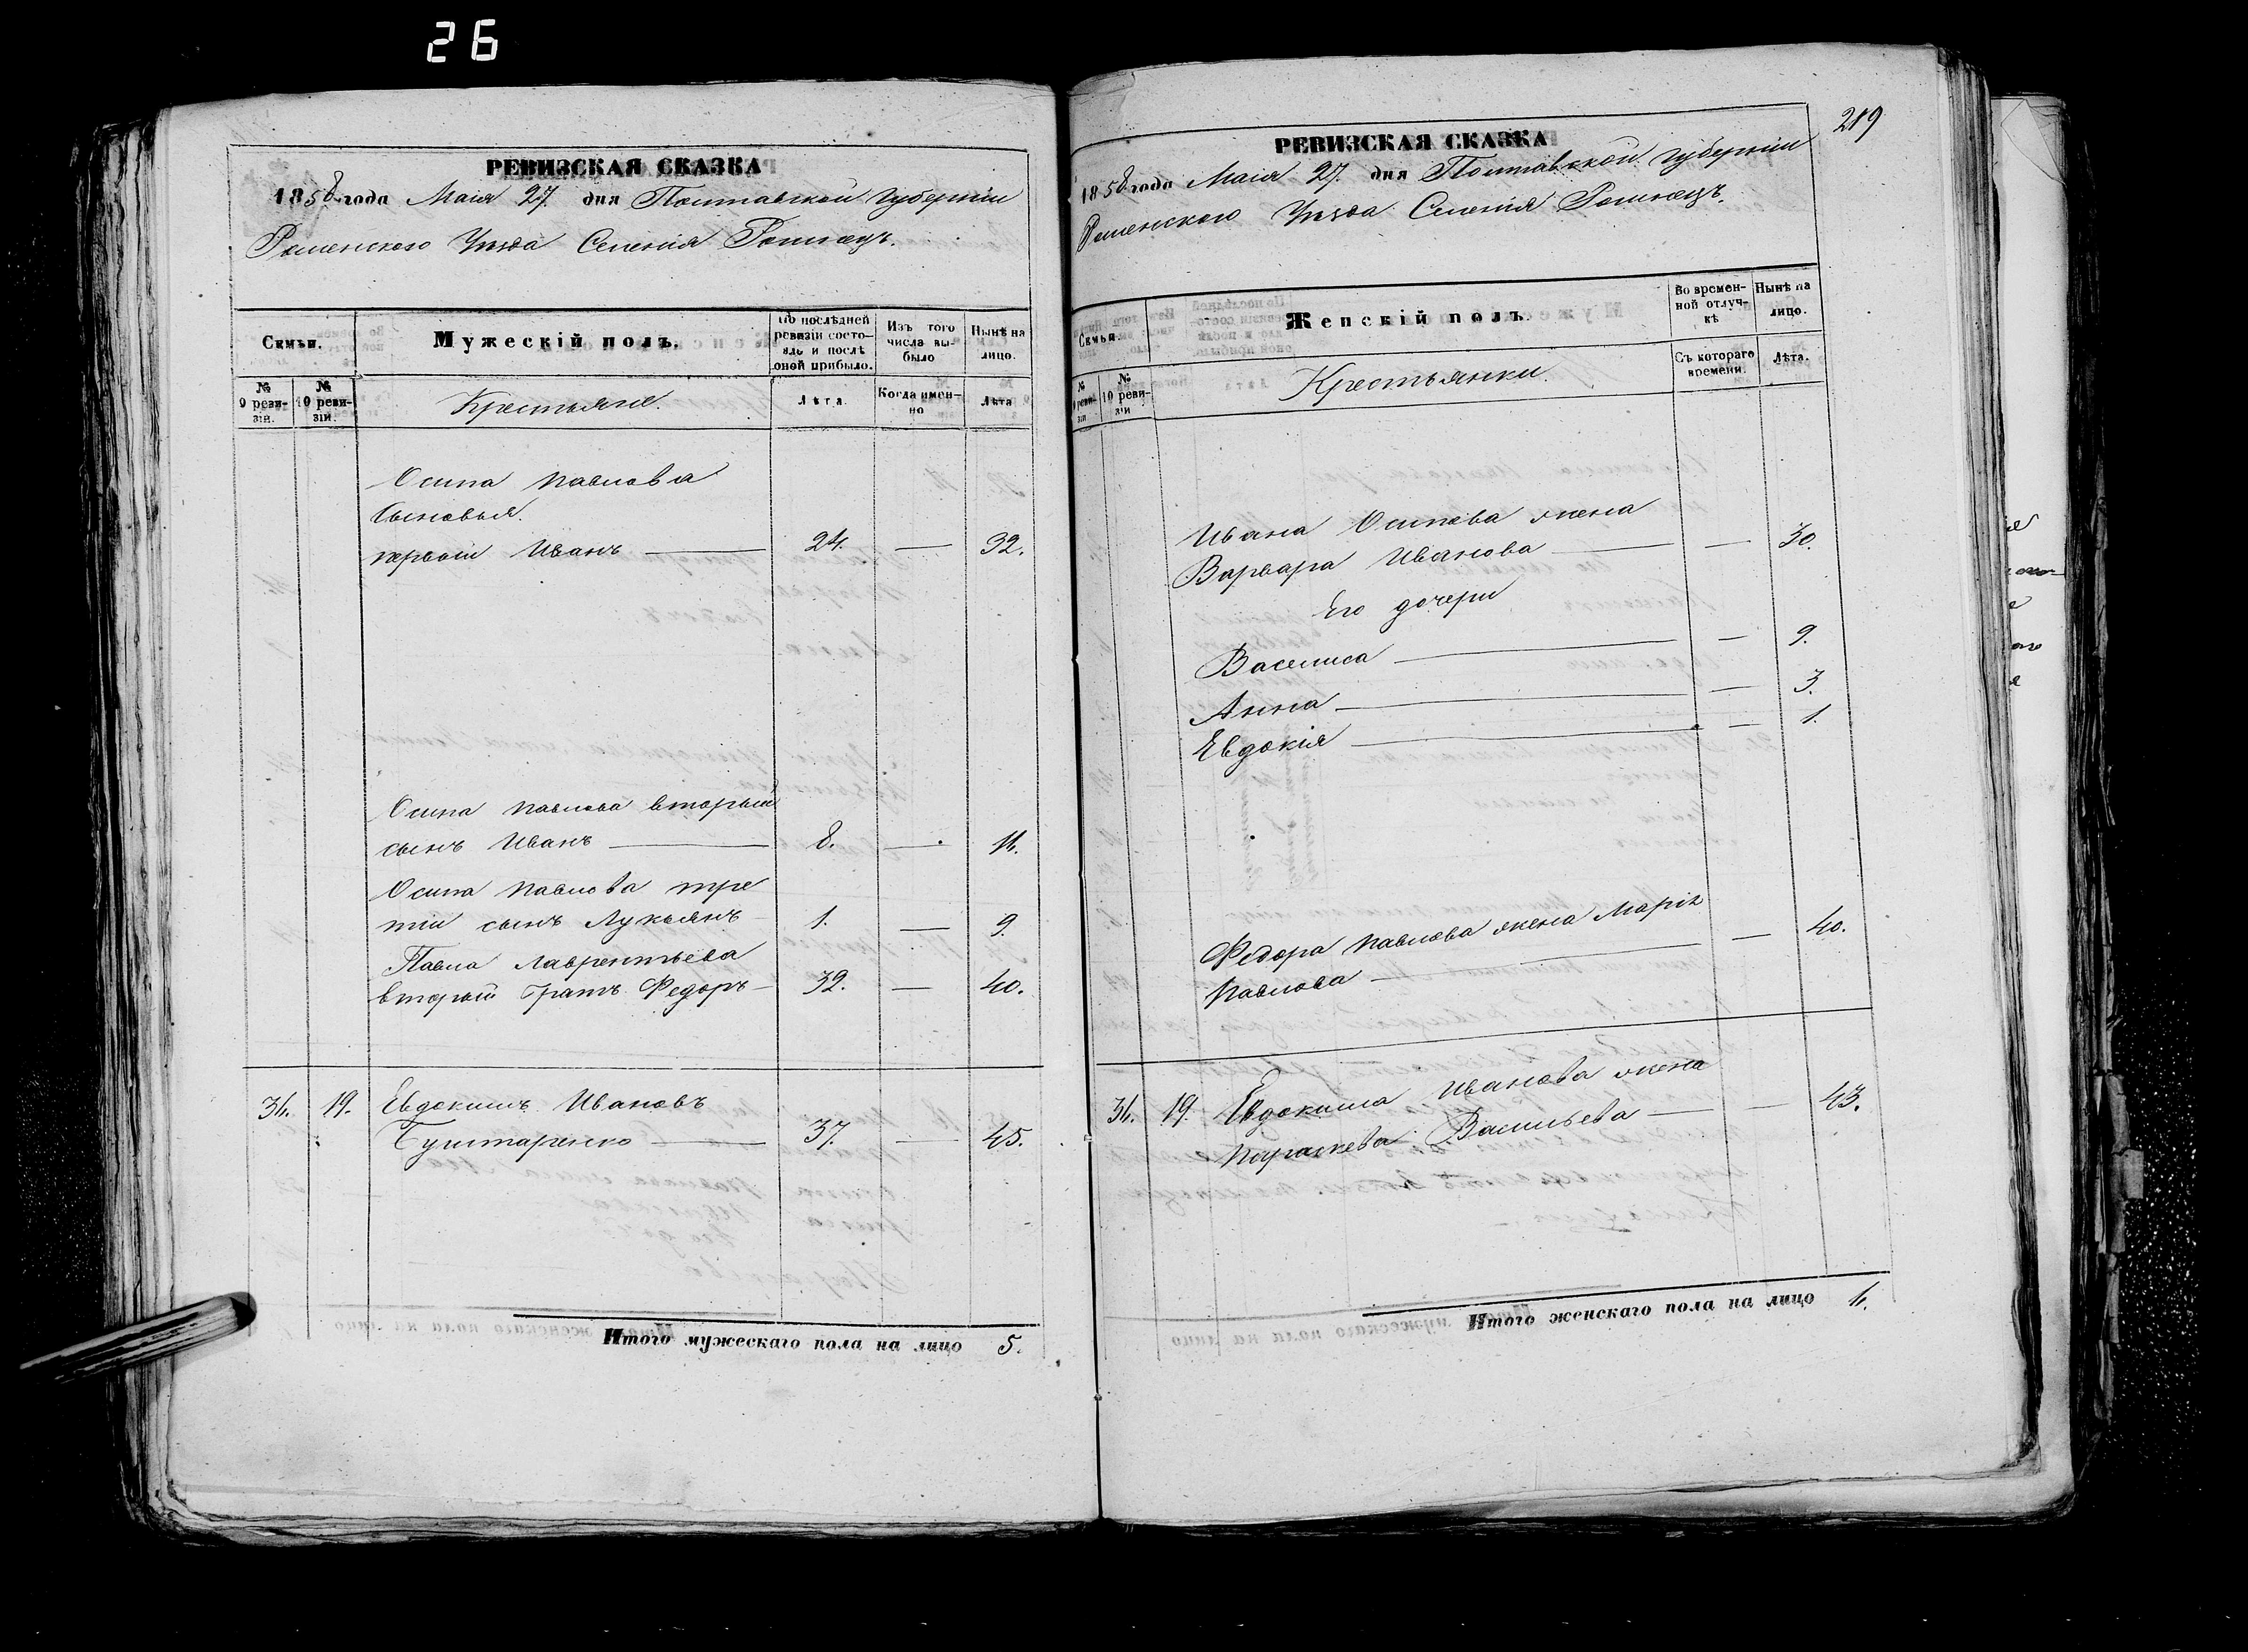 26
РЕВИЗСКАЯ СКАЗКА
1858 года Маія 27. дня Полтавской губерніи
Роменского Уѣзда Селенія
Семьи.
Мужескій полъ.
По послѣдней ревизіи состояло и послѣ оной прибыло.
Изъ того числа выбыло
Нынѣ на лицо.
№ 9 ревизіи.
№ 10 ревизіи.
Крестьяне.
Лѣта.
Когда именно
Лѣта
Осипа Павлова
Сыновья.
первый Иванъ — 24. — 32.
Осипа Павлова вторый
сынъ Иванъ — 8. — 16.
Осипа Павлова тре
тій сынъ Лукьянъ — 1. — 9.
Павла Лаврентьева
вторый братъ Федоръ — 32. — 40.
36. 19. Евдокимъ Ивановъ
37. — 45.
Итого мужескаго пола на лицо 5.
219
РЕВИЗСКАЯ СКАЗКА
1858 года Маія 27. дня Полтавской губерніи
Роменского Уѣзда Селенія
Семьи.
Женскій полъ.
Во временной отлучкѣ
Нынѣ на лицо.
№ 9 ревизіи
№ 10 ревизіи
Крестьянки.
Съ котораго времени.
Лѣта.
Ивана Осипова жена
Варвара Иванова — — 30.
Его дочери
Василиса — — 9.
Анна — — 3.
Евдокія — — 1.
Федора Павлова жена Марія
Павлова — — 40.
36. 19. Евдокима Иванова жена
Параскева Васильева — — 43.
Итого женскаго пола на лицо 6.